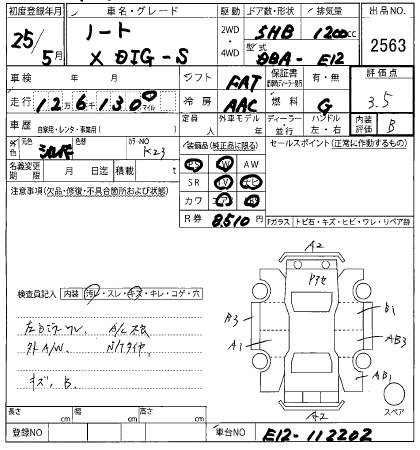 初度登録年月 車名・グレード 駆動 ドア数・形状 排気量 出品NO
25/5月 ノート X DIG-S 2WD・4WD 5HB 1200cc 2563
型式 DBA-E12
車検 年 月 シフト FAT 保証書 有・無 評価点
走行 12万6千130マイル 冷房 AAC 燃料 G 3.5
車歴 自家用・レンタ・事業用( ) 定員 人 外車モデル ディーラー・並行 ハンドル 左・右 内装評価 B
外色 元色 シルバー 色替 カラーNO K23 装備品(純正品に限る) セールスポイント(正常に作動するもの)
PS PW AW
名義変更期限 月 日迄 積載 t SR TV ナビ
注意事項(欠品・修復・不具合箇所および状態) カワ エアB
R券 8510円 Fガラス トビ石・キズ・ヒビ・ワレ・リペア跡
A2
Pアセ
検査員記入 内装 汚レ・スレ・キズ・キレ・コゲ・穴
B3 B1
A1 AB3
外A/W N/Tタイヤ
キズ、B
AB1
A2
スペア
長さ cm 幅 cm 高さ cm
登録NO 車台NO E12-112202